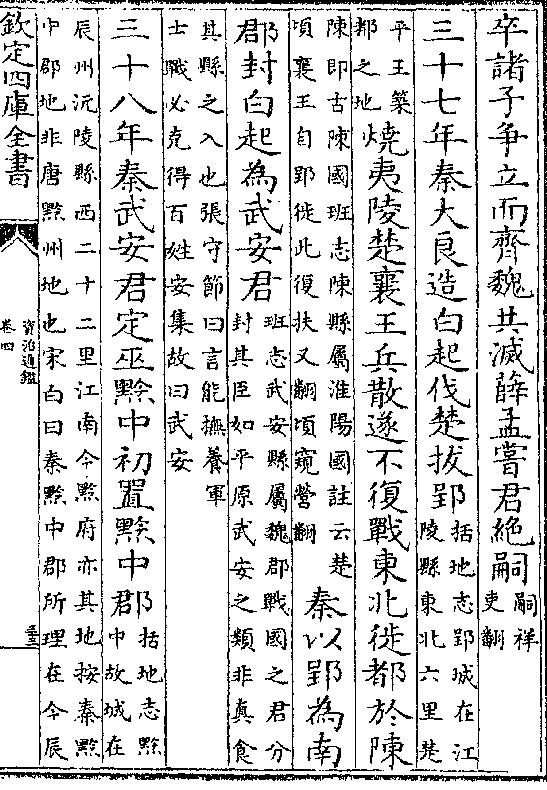 卒諸子争立而齊魏共滅薛孟嘗君絶嗣嗣祥吏翻
三十七年秦大良造白起伐楚拔郢括地志郢城在江陵縣東北六里楚
平王築都之地燒夷陵楚襄王兵散遂不復戰東北徙都於陳
陳即古陳國班志陳縣屬淮陽國註云楚頃襄王自郢徙此復扶又翻頃窺營翻秦以郢為南
郡封白起為武安君班志武安縣屬魏郡戰國之君分封其臣如平原武安之類非真食
其縣之入也張守節曰言能撫養軍士戰必克得百姓安集故曰武安
三十八年秦武安君定巫黔中初置黔中郡括地志黔中故城在
辰州沅陵縣西二十二里江南今黔府亦其地按秦黔中郡地非唐黔州地也宋白曰秦黔中郡所理在今辰
欽定四庫全書
資治通鑑
卷四